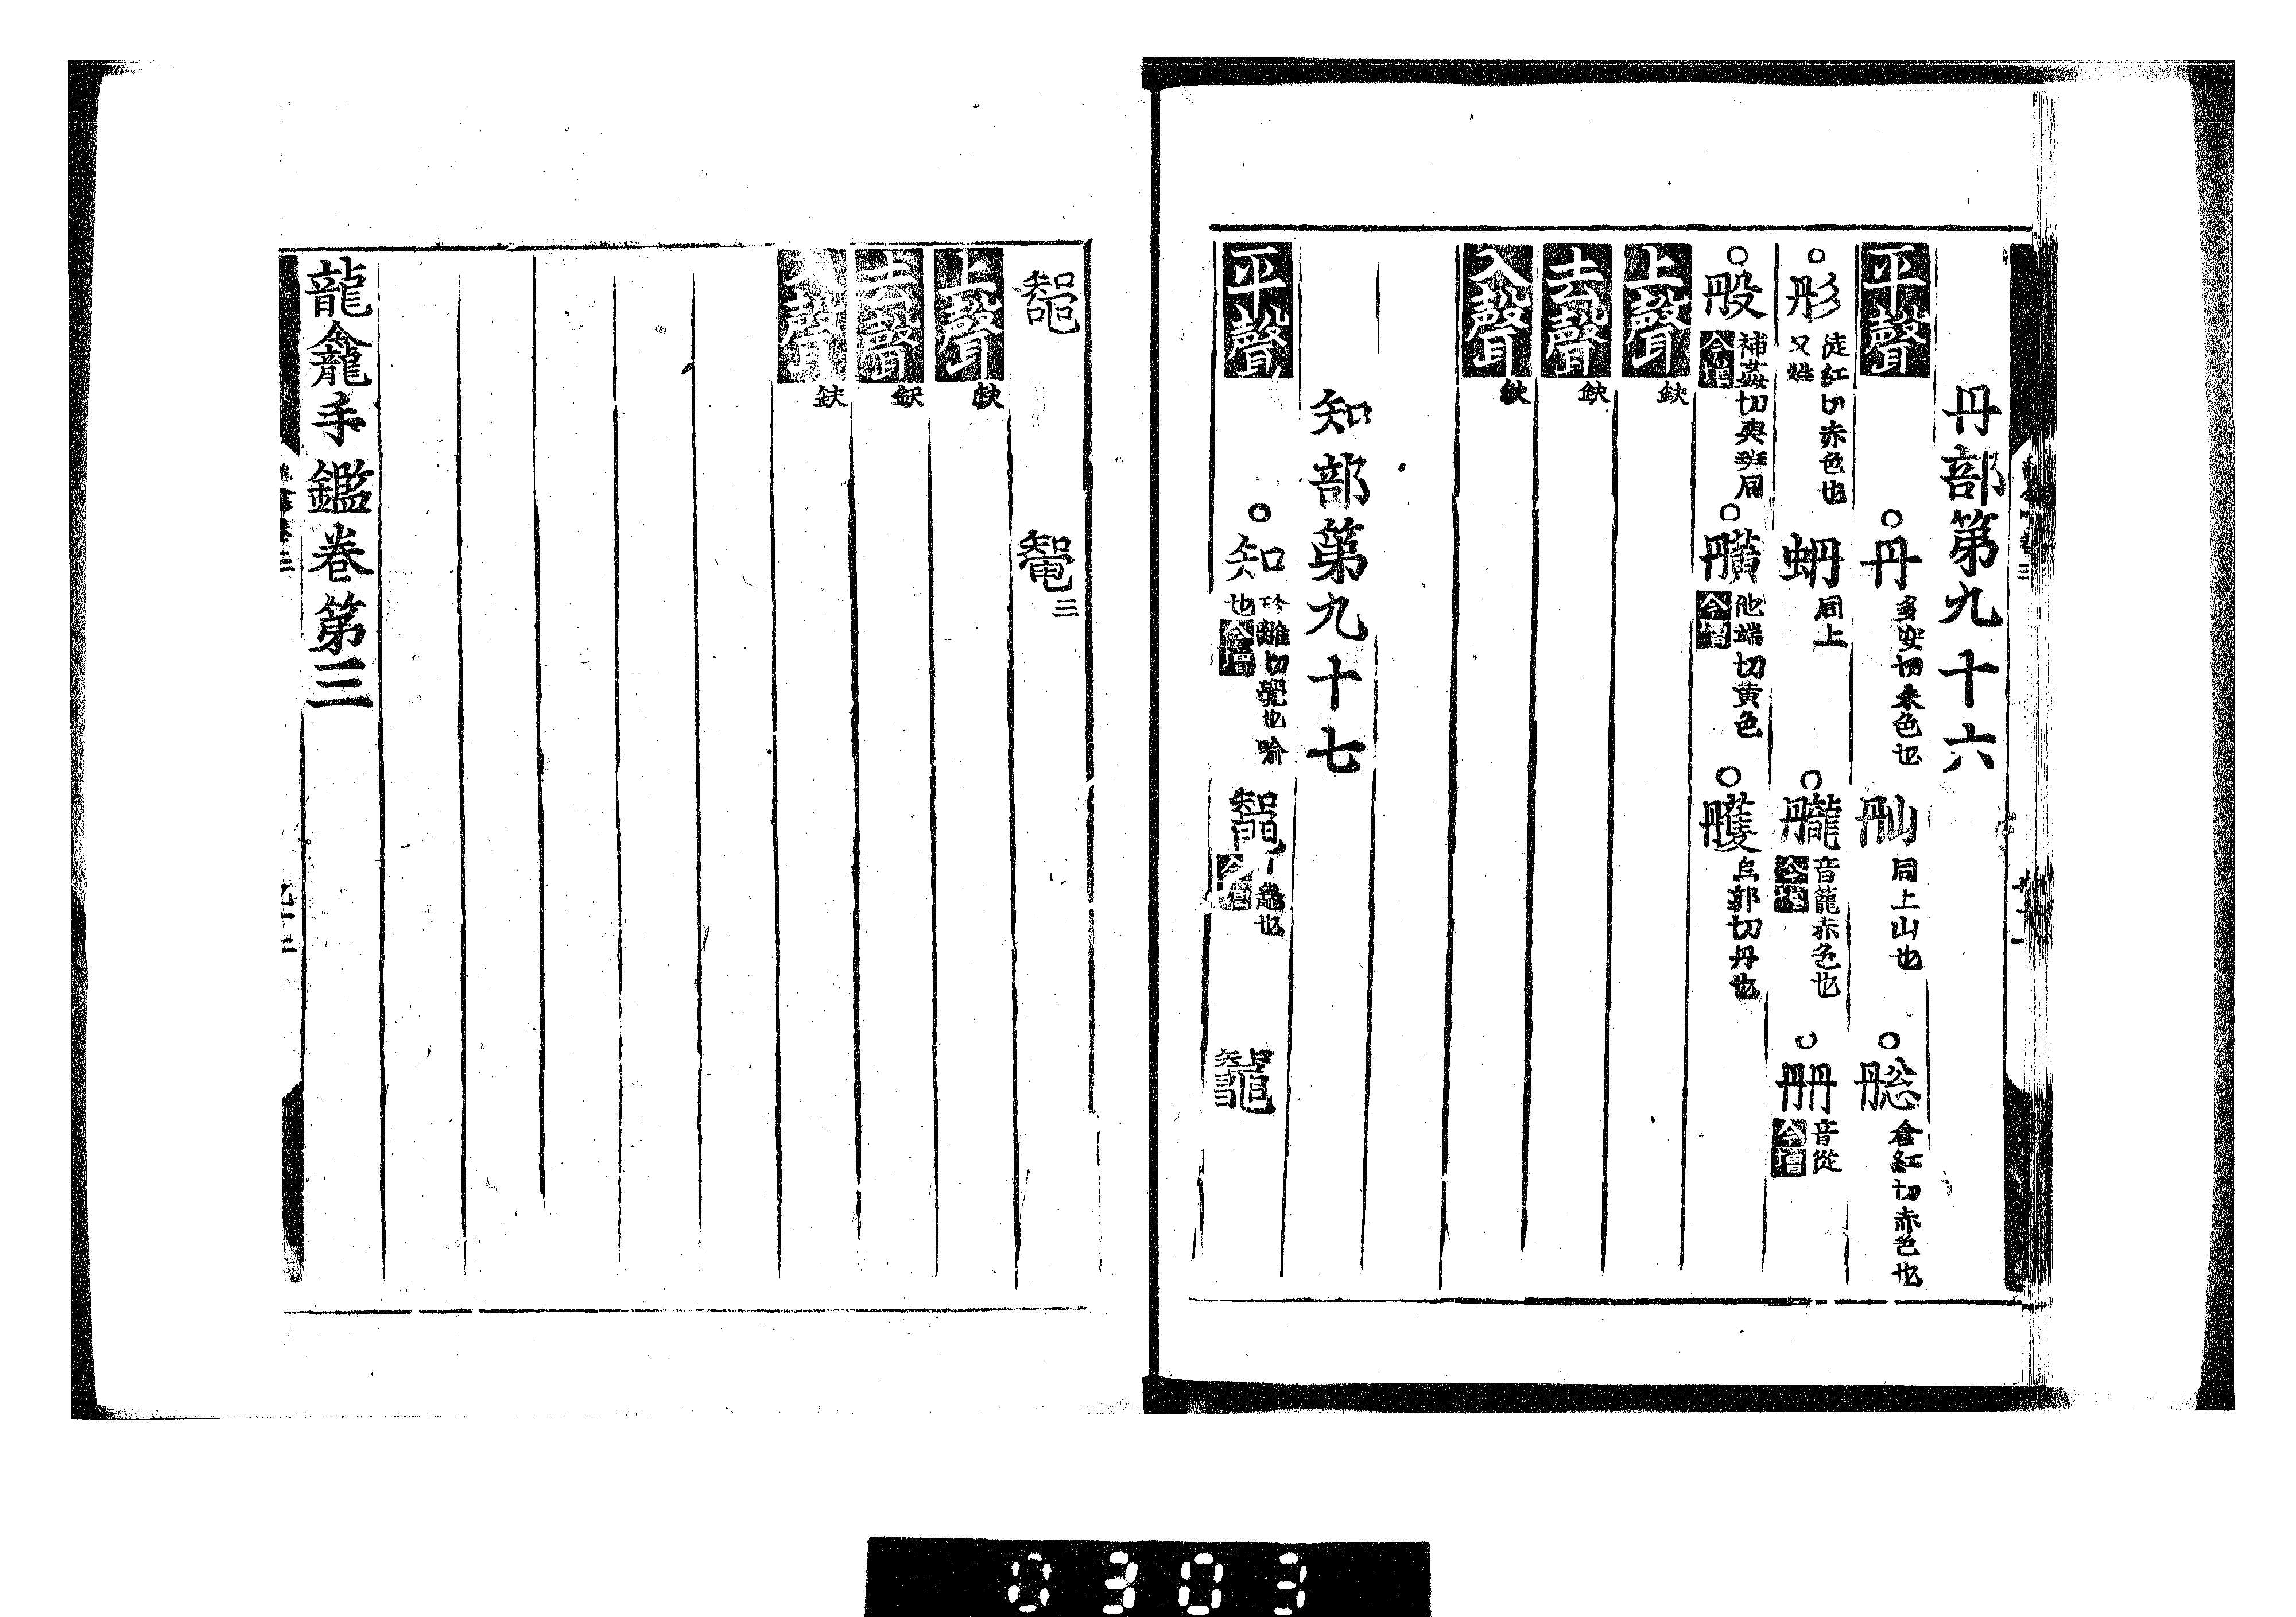 丹部第九十六
平聲 ○丹 多安切朱色也 𠕱 同上山也 ○ 倉紅切赤色也
○彤 徒紅切赤色也又姓 蚒 同上 ○ 音籠赤色也今增 ○ 音從今增
○ 補姦切與班同今增 ○ 他端切黄色今增 ○雘 烏郭切丹也
上聲 缺
去聲 缺
入聲 缺
知部第九十七
平聲 ○知 珍離切覺也喻也今增 鼅 蟲也今增
三
上聲 缺
去聲 缺
入聲 缺
龍龕手鑑卷第三
0303